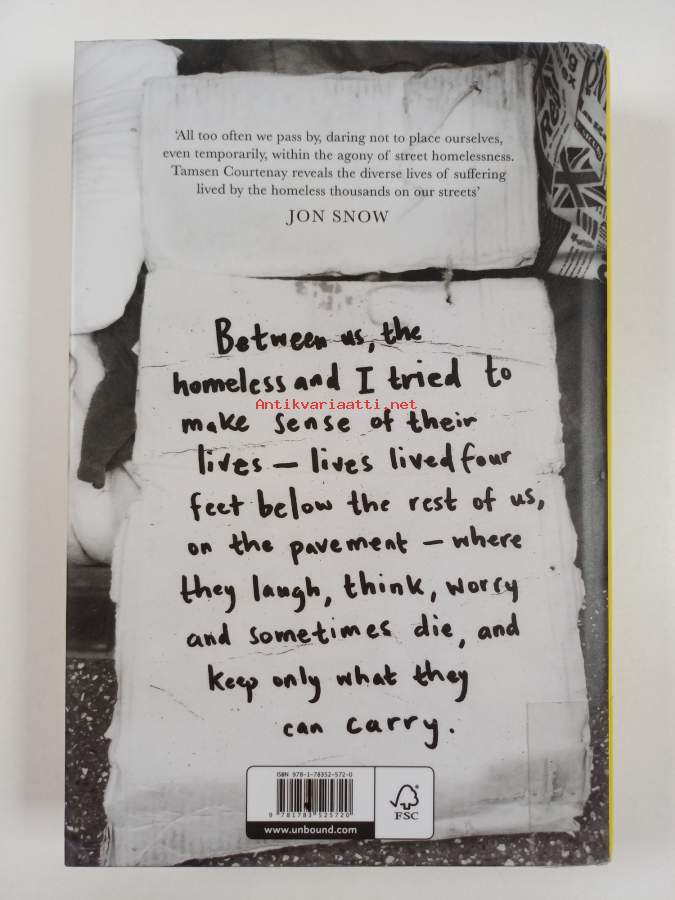 'All too often we pass by, daring not to place ourselves,
even temporarily, within the agony of street homelessness.
Tamsen Courtenay reveals the diverse lives of suffering
lived by the homeless thousands on our streets'
JON SNOW
Between us, the
homeless and I tried to
Antikvariaatti.net
make sense of their
lives — lives lived four
feet below the rest of us,
on the pavement — where
they laugh, think, worry
and sometimes die, and
keep only what they
can carry.
ISBN 978-1-78352-572-0
9 781783 525720
www.unbound.com
FSC